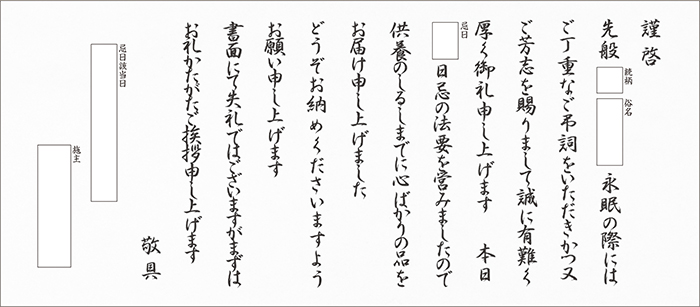 謹啓
先般 続柄 俗名 永眠の際には
ご丁重なご弔詞をいただきかつ又
ご芳志を賜りまして誠に有難く
厚く御礼申し上げます 本日
忌日 日忌の法要を営みましたので
供養のしるしまでに心ばかりの品を
お届け申し上げました
どうぞお納めくださいますよう
お願い申し上げます
書面にて失礼ではございますがまずは
お礼かたがたご挨拶申し上げます
敬具
忌日該当日
施主